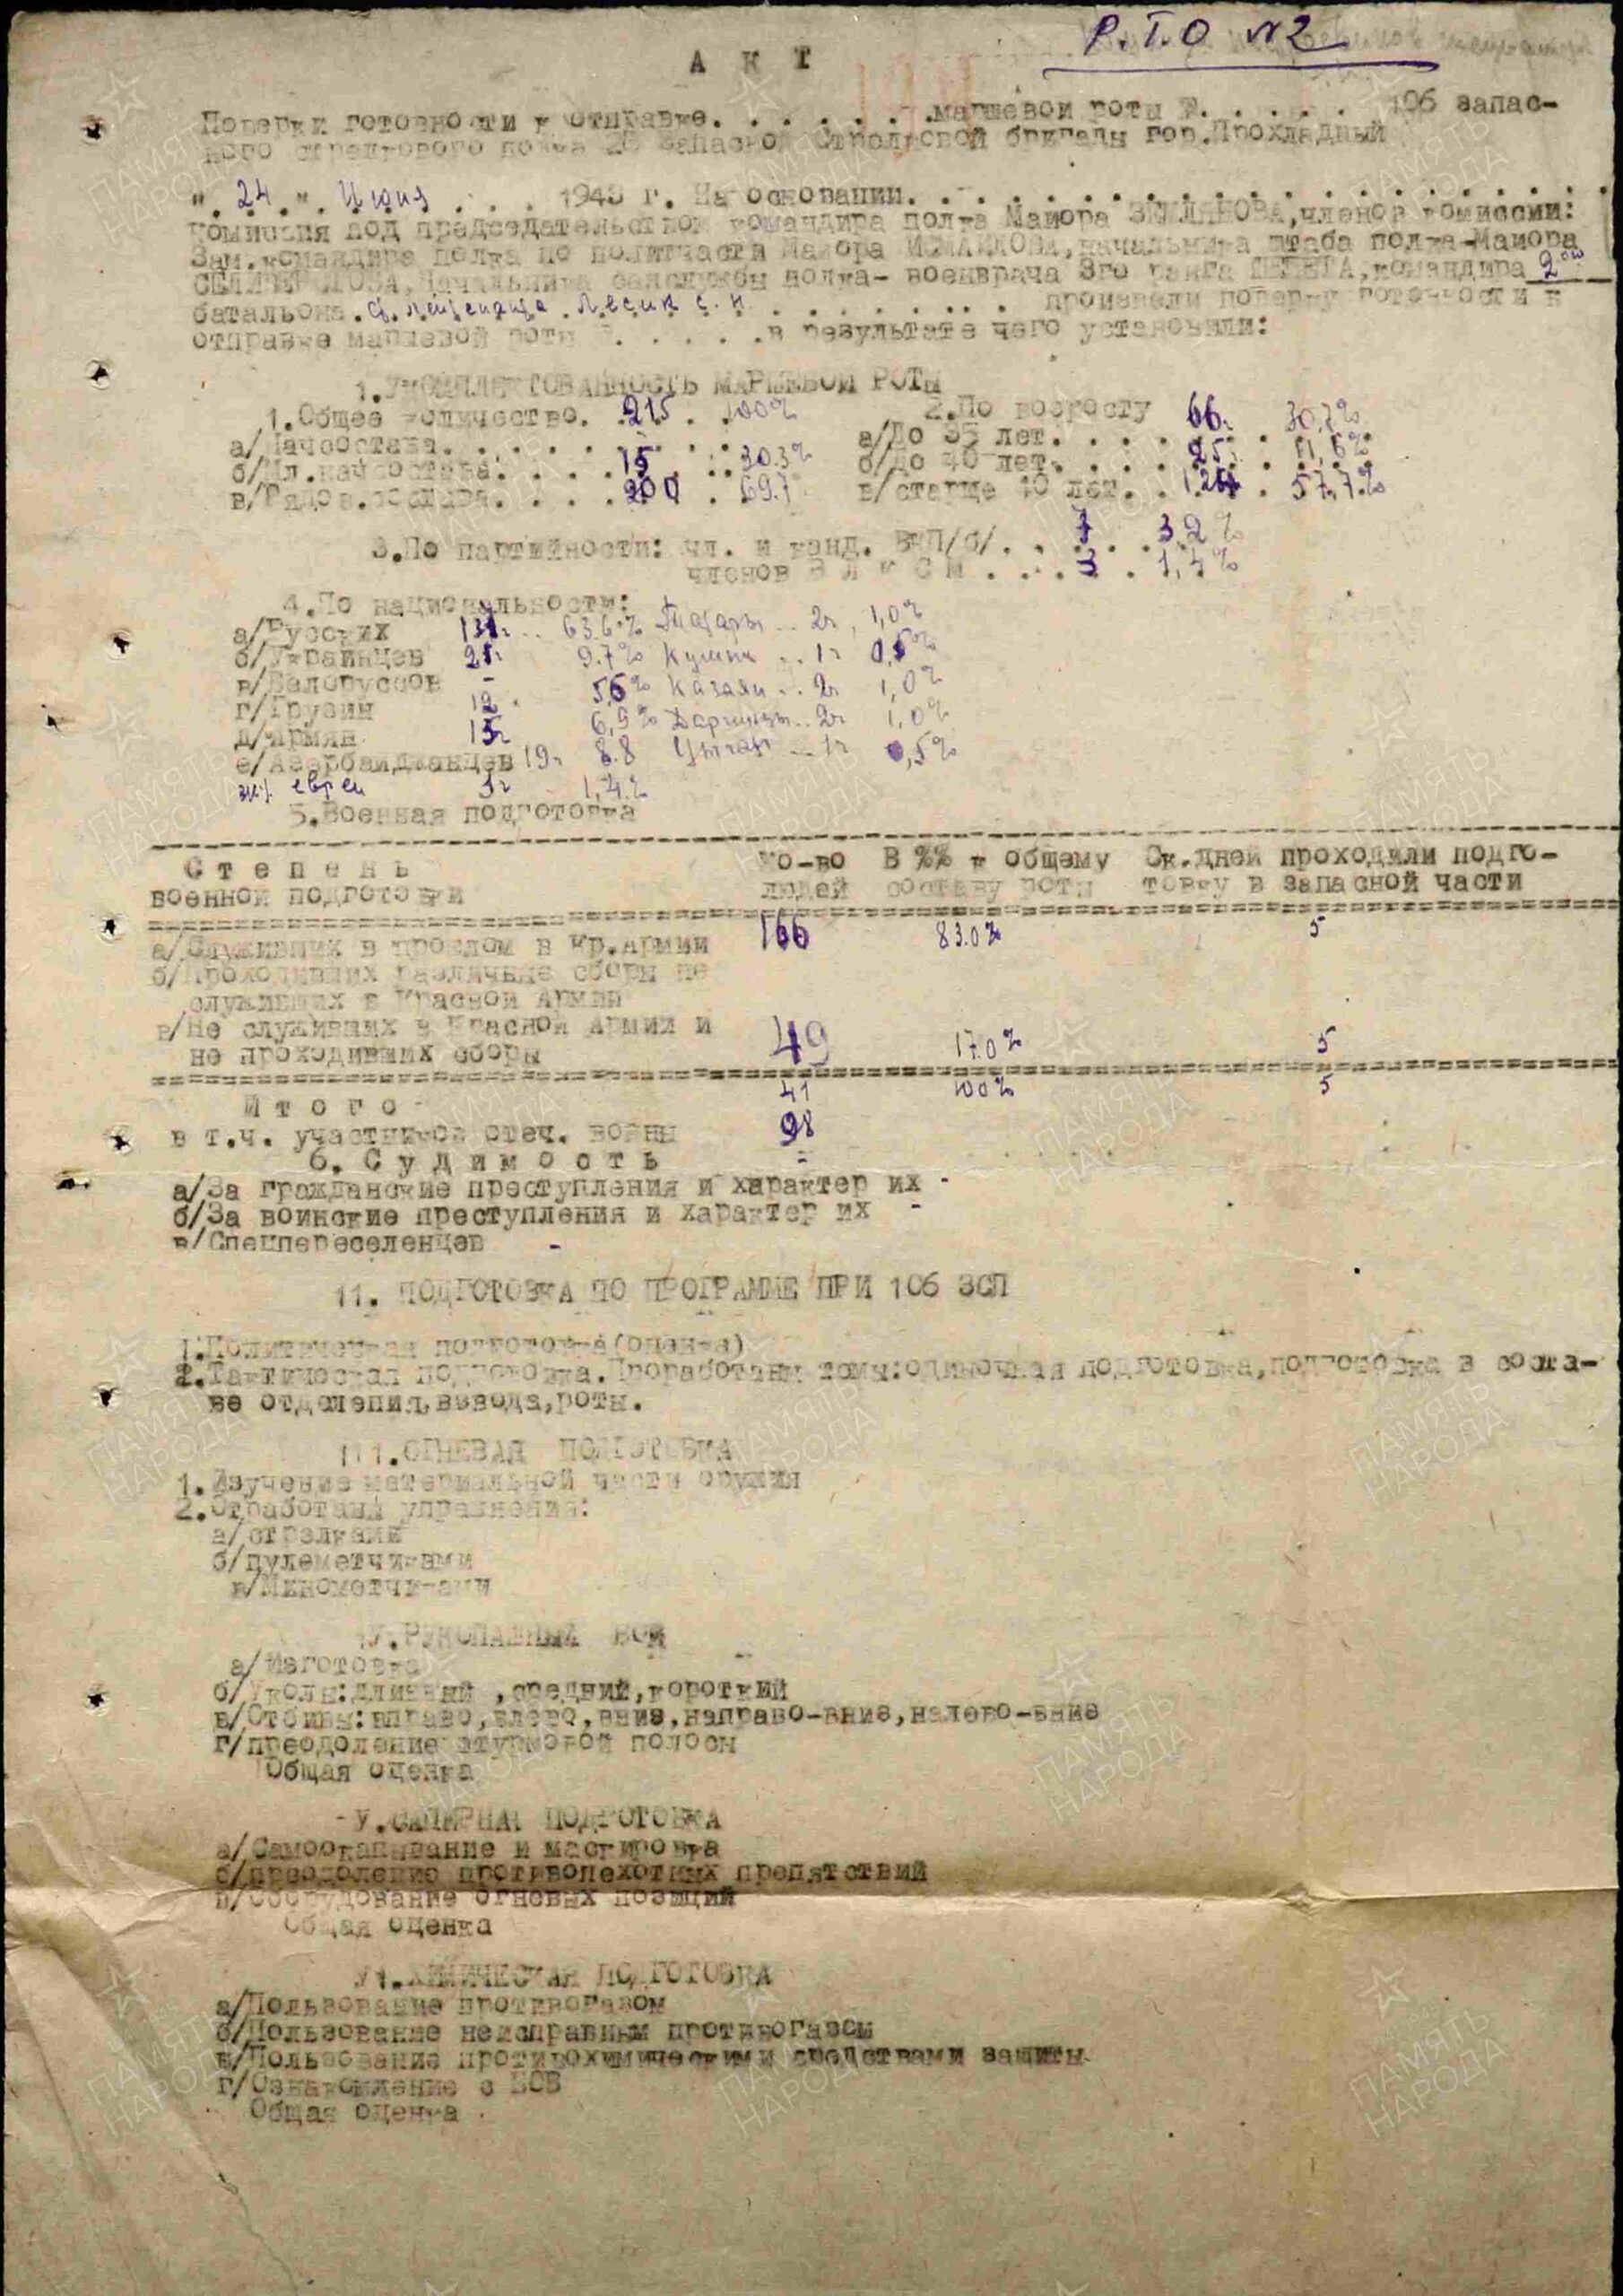 Р.Т.О №2
А К Т
Поверки готовности к отправке. . . . . . .маршевой роты №. . . . . 106 запас-
ного стрелкового полка 28 запасной Стрелковой бригады гор.Прохладный
". 24. ". Июня . . . 1943 г. На основании. . . . . . . . . . . . . . . . . . .
комиссия под председательством командира полка Майора ЗЕМЛЯНОВА,членов комиссии:
Зам.командира полка по политчасти Майора ИСМАИЛОВА,начальника штаба полка-Майора
СЕЛИВЕРСТОВА,Начальника санслужбы полка- военврача 3го ранга командира 2ого
батальона. ст. лейтенанта . . . . . . . произвели поверку готовности к
отправке маршевой роты №. . . . . .в результате чего установили:
1.УКОМПЛЕКТОВАННОСТЬ МАРШЕВОЙ РОТЫ
1.Общее количество. . 215 . .100%
2.По возрасту
а/Начсостава. . . . . . . . .
а/До 35 лет. . . . 66. 30,7%
б/Мл.начсостава. . . . 15 . . 30.3%
б/До 40 лет. . . . 25. 11,6%
в/Рядов.состава. . . . 200 . 69.7
в/старше 40 лет. . 124 . 57,7%
3.По партийности: чл. и канд. ВКП/б/. . 7 3,2%
членов В Л К С М . . . 3 . 1,4%
4.По национальности:
а/Русских 137ч.. 63.6% Татары .. 2ч, 1,0%
б/Украинцев 21ч 9.7% Кумык .. 1ч 0,5%
в/Белоруссов -
г/Грузин 12. 5,6% Казахи .. 2ч 1,0%
д/Армян 15ч 6,9% Даргинцы.. 2ч 1,0%
е/Азербайджанцев 19ч 8.8 Цыган .. 1ч 0,5%
ж/. евреи 3ч 1,4%
5.Военная подготовка
С т е п е н ь Ко-во В %% к общему Ск.дней проходили подго-
военной подготовки людей составу роты товку в запасной части
а/Служивших в прошлом в Кр.Армии 166 83.0% 5
б/Проходивших различные сборы не
служивших в Красной Армии
в/Не служивших в Красной Армии и
не проходивших сборы 49 17.0% 5
И т о г о 41 100% 5
в т.ч. участников отеч. войны 98
6. С у д и м о с т ь =
а/За гражданские преступления и характер их -
б/За воинские преступления и характер их -
в/Спецпереселенцев -
11. ПОДГОТОВКА ПО ПРОГРАММЕ ПРИ 106 ЗСП
1.Политическая подготовка(оценка)
2.Тактическая подготовка.Проработаны темы:одиночная подготовка,подготовка в соста-
ве отделения,взвода,роты.
111.ОГНЕВАЯ ПОДГОТОВКА
1.Изучение материальной части оружия
2.Отработаны упражнения:
а/стрелками
б/пулеметчиками
в/Минометчиками
1У.РУКОПАШНЫЙ БОЙ
а/Изготовка
б/Уколы:длинный ,средний,короткий
в/Отбивы:вправо,влево,вниз,направо-вниз,налево-вниз
г/преодоление штурмовой полосы
Общая оценка
У.САПЕРНАЯ ПОДГОТОВКА
а/Самоокапывание и маскировка
б/преодоление противопехотных препятствий
в/Оборудование огневых позиций
Общая оценка
У1.ХИМИЧЕСКАЯ ПОДГОТОВКА
а/Пользование противогазом
б/Пользование неисправным противогазом
в/Пользование противохимическими средствами защиты
г/Ознакомление с БОВ
Общая оценка